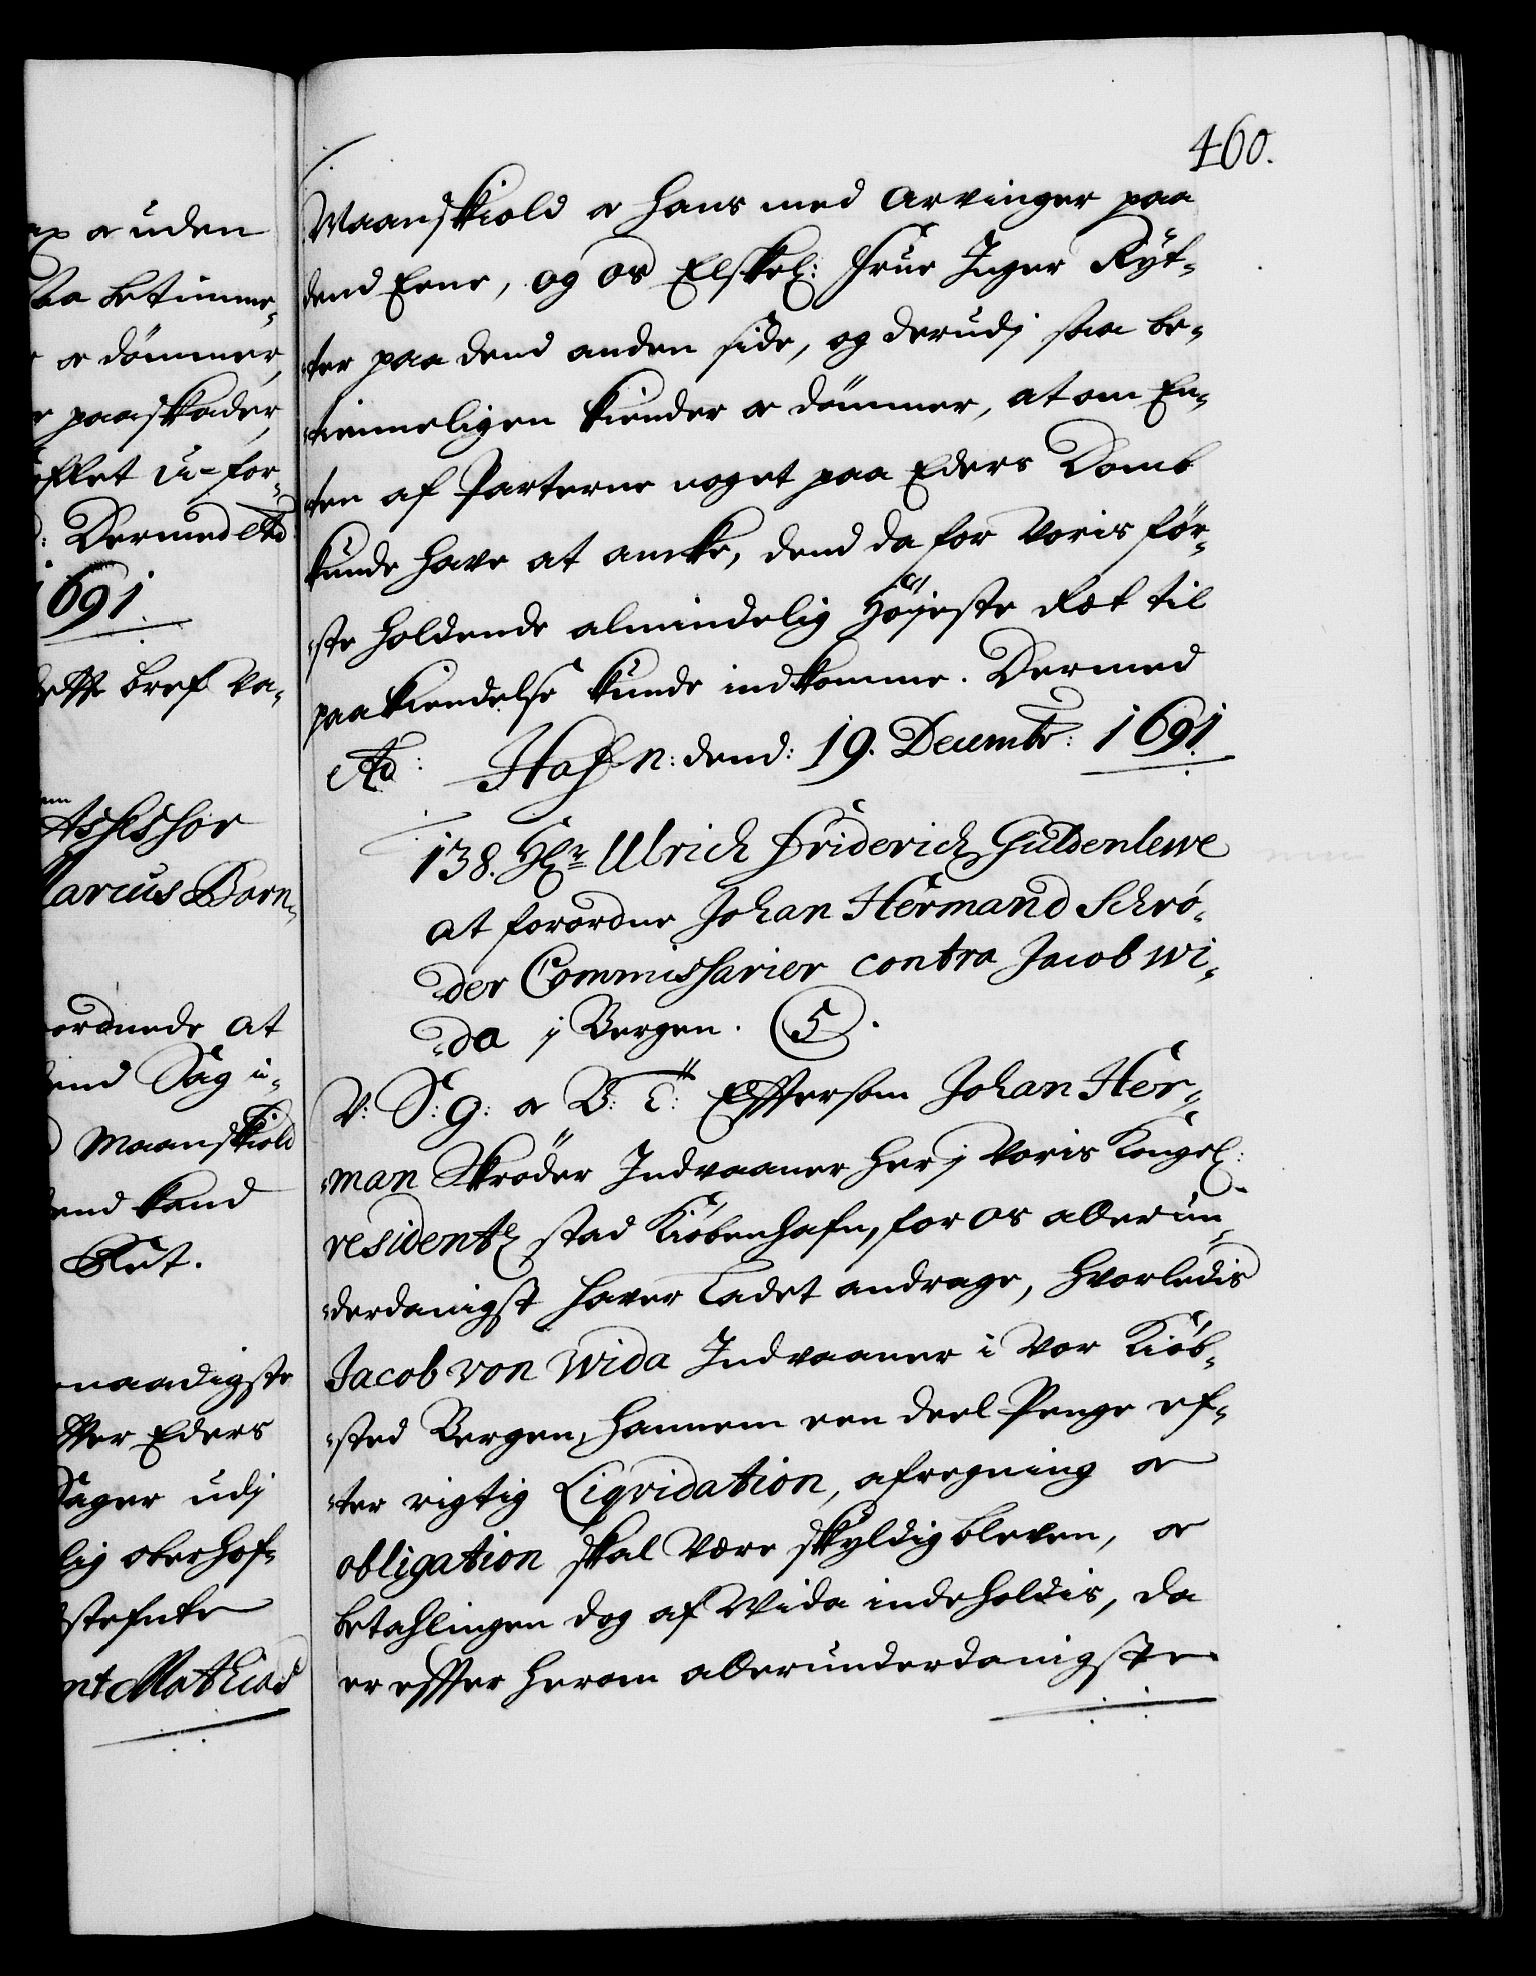 460.
Maanskiold & hans med Arvinger paa
dend Eene, og os Elskel: Frue Inger Ryt-
ter paa dend anden side, og derudj saa be-
timmeligen kiender & dömmer, at om En-
ten af Parterne noget paa Eders Domb
kunde have at ancke, dend da for Voris för-
ste holdende almindelig Höjeste Ret til
paakiendelse kunde indkomme. Dermed
etc: Hafn: dend: 19. Decembr: 1691
138. Hr: Ulrich Friderich Güldenlewe
at forordne Johan Hermand Schrö-
der Commissarier contra Jacob Wi-
da j Bergen. 5.
V: S: g: & B: T: Efftersom Johan Her-
man Skröder Indvaaner her j Voris Kongel:
residentz stad Kiöbenhafn, for os allerun-
derdanigst haver ladet andrage, hvorledis
Jacob von Wida Indvaaner i Vor Kiöb-
sted Bergen, hannem een deel Penge ef-
ter rigtig Liqvidation, afregning &
obligation skal være skyldig bleven, &
betahlingen dog af Wida indeholdis, da
er effter herom allerunderdanigste
& uden
betimme-
& dömmer,
paaskader,
Dermed etc
1691
bref va-
Assessor
Marcus Barn-
ordnede at
dend Sag u-
Maanskiold
dend kand
Ret.
naadigste
Eders
Sager udj
lig oberhof-
Mathias